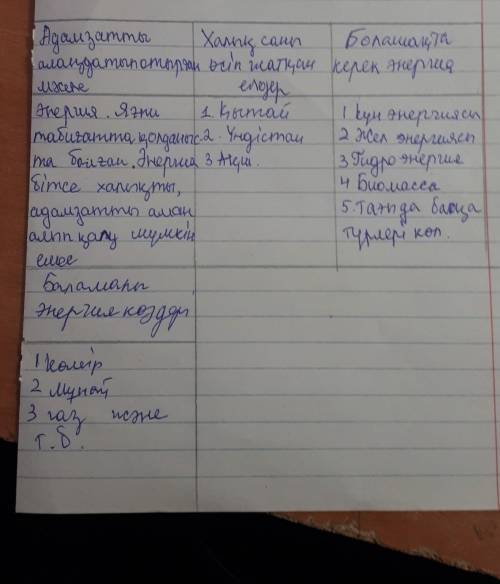 Адамзатты
алаңдатып отырған
мәселе
Халық саны
өсіп жатқан
елдер
Болашақта
керек энергия
Энергия. Яғни
табиғатта қолданыс
та болған. Энергия
бітсе халықты,
адамзатты аман
алып қалу мүмкін
емес
1. Қытай
2. Үндістан
3 Ақш.
1 Күн энергиясы
2 Жел энергиясы
3 Гидро энергие
4 Биомасса
5. Тағыда басқа
түрлері көп.
Баламалы
энергия көздері
1 көмір
2 мұнай
3 газ және
т.б.